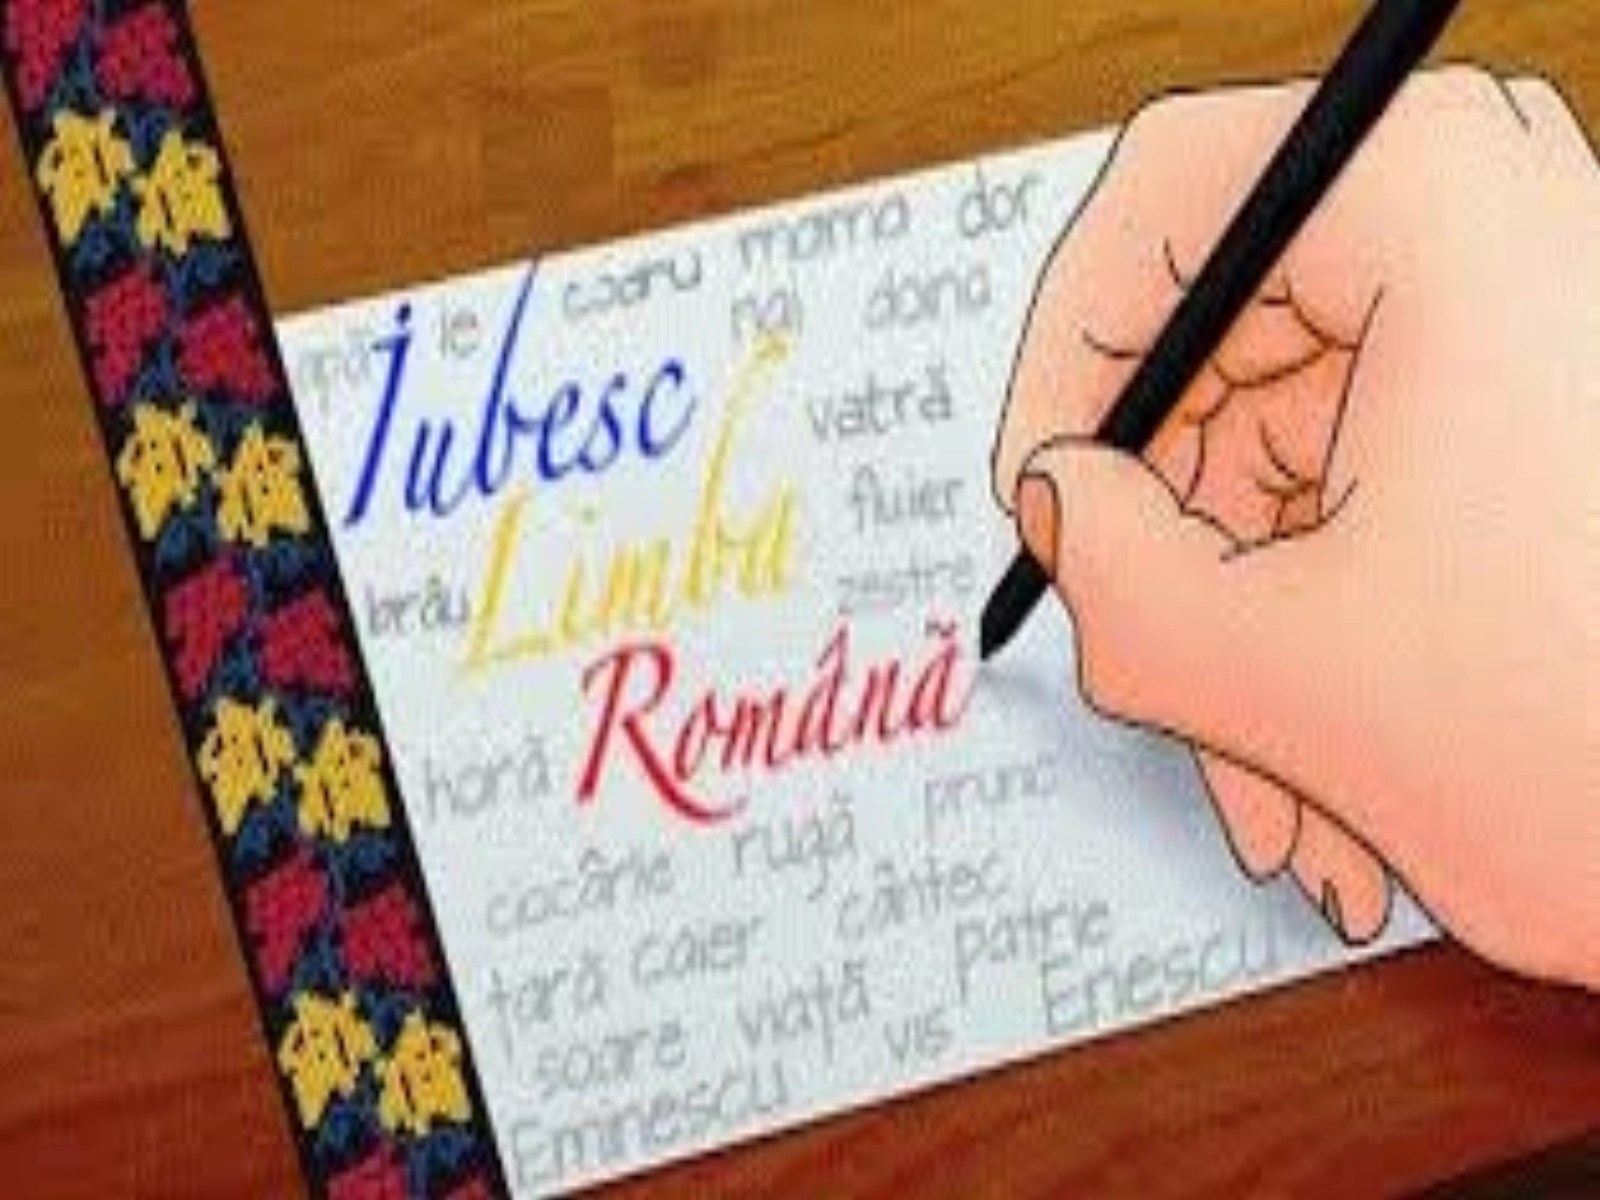 mama dor
ie codru nai doina
Iubesc vatră
Limba fluier
brâu zestre
Română
horă
ciocârlie rugă prunc
țară caier cântec
soare viață patrie
Eminescu vis Enescu